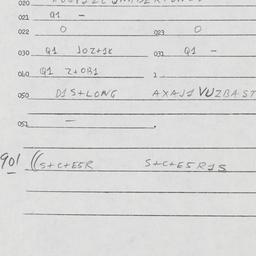 020
021 Q1 -
022 0 023 0
030 Q1 JOZ+1K 031 Q1 -
040 Q1 Z+OR1
050 D1S+LONG AXAJ1 VUZBAST
051 -
901 ((S+C+E5R S+C+E5R1S